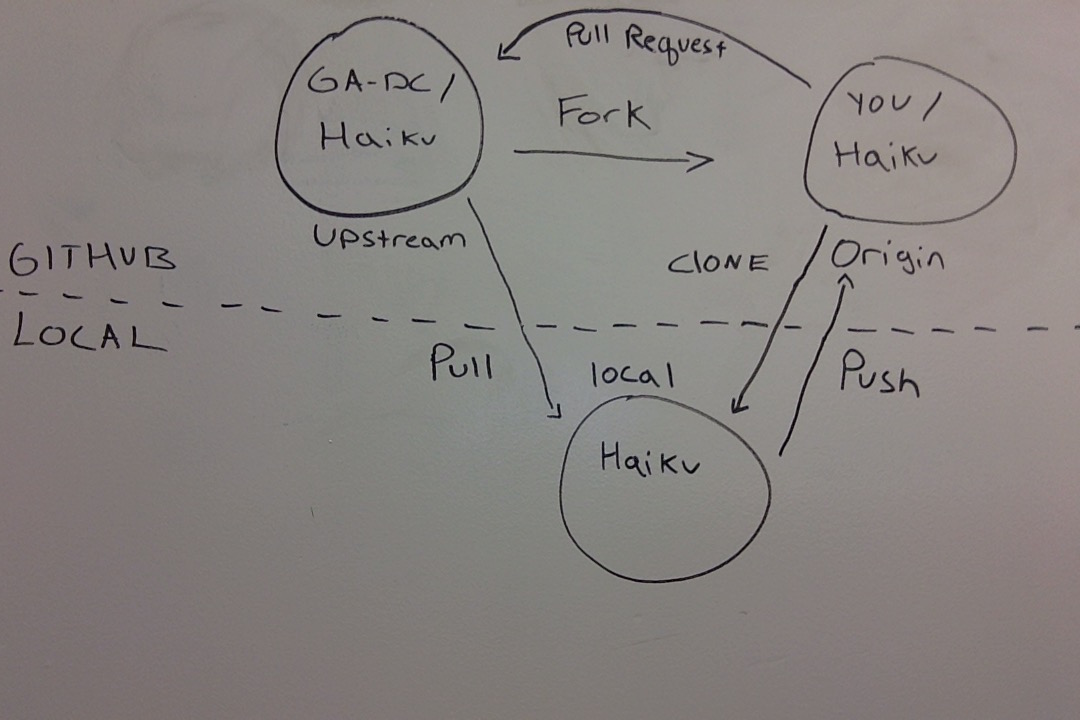 Pull Request
GA-DC/
Haiku
Fork
YOU/
Haiku
Upstream
Origin
GITHUB
ClONE
LOCAL
Pull
local
Push
Haiku